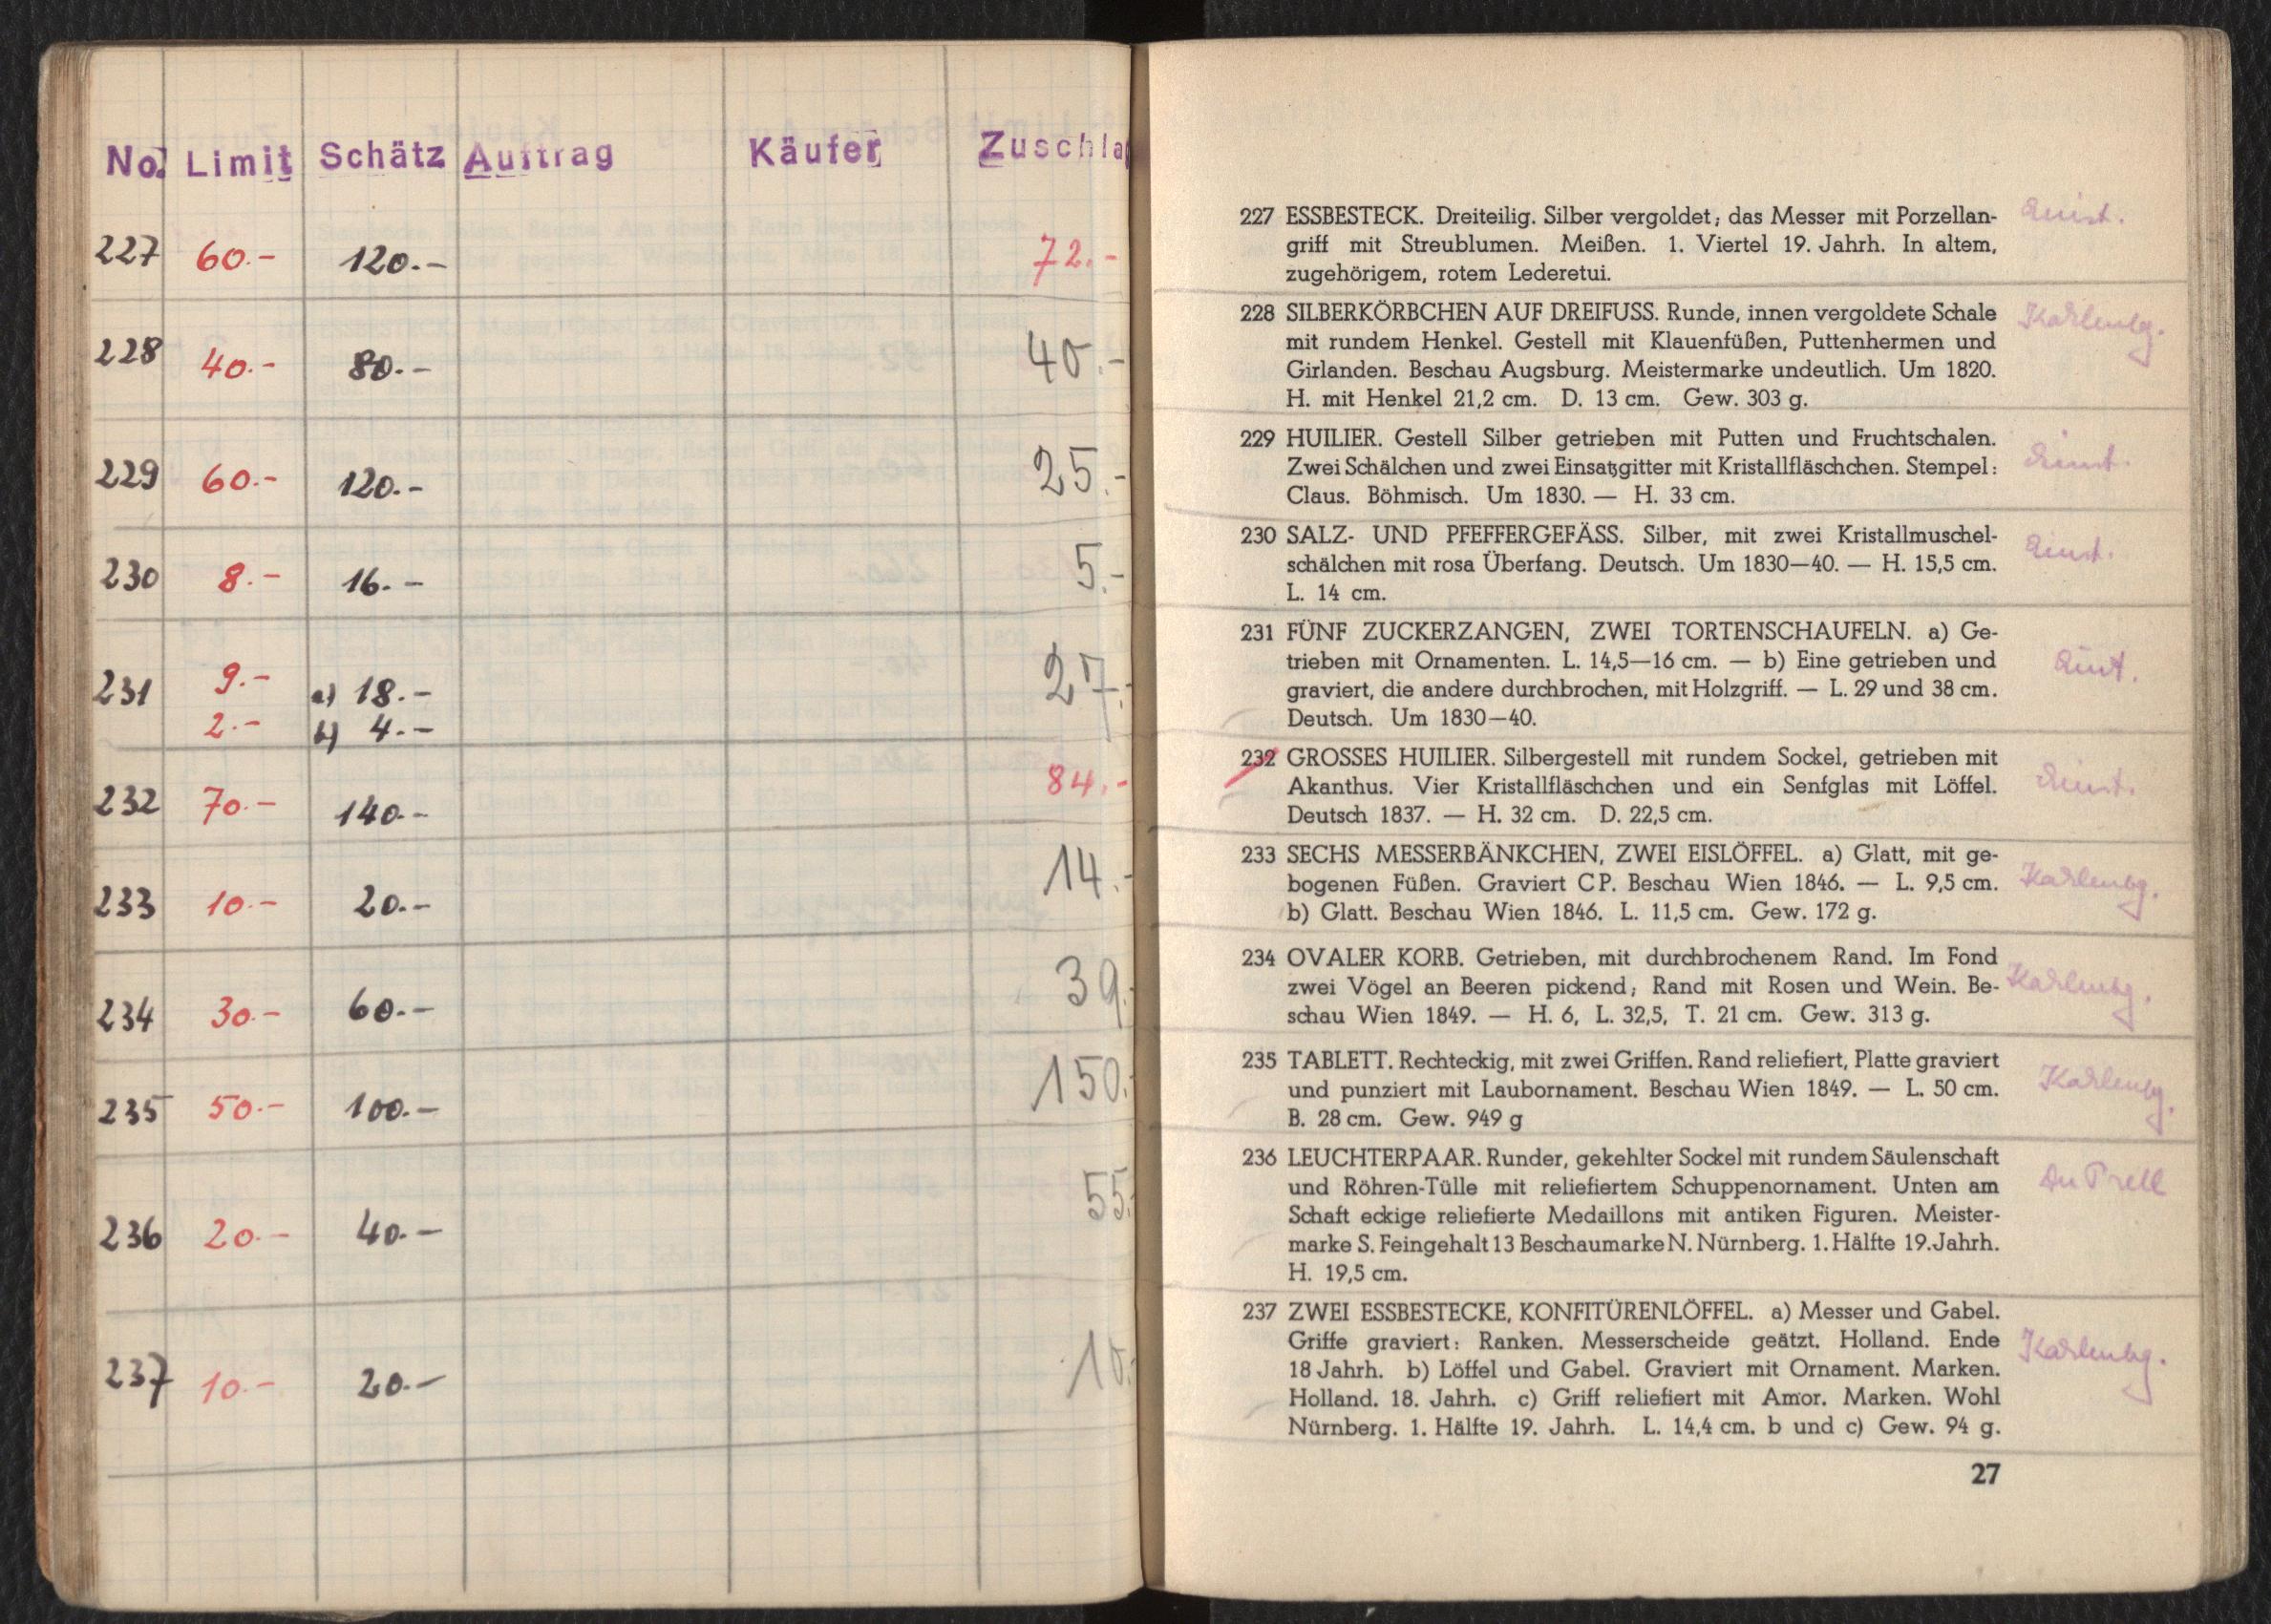 No. Limit Schätz Auftrag Käufer Zuschla
227 60.- 120.- 72.-
228 40.- 80.- 40.-
229 60.- 120.- 25.-
230 8.- 16.- 5.-
231 9.- a) 18.- 27.-
2.- b) 4.-
232 70.- 140.- 84.-
233 10.- 20.- 14.-
234 30.- 60.- 39.-
235 50.- 100.- 150.-
236 20.- 40.- 55.-
237 10.- 20.- 10.-
227 ESSBESTECK. Dreiteilig. Silber vergoldet; das Messer mit Porzellan-
griff mit Streublumen. Meißen. 1. Viertel 19. Jahrh. In altem,
zugehörigem, rotem Lederetui.
228 SILBERKÖRBCHEN AUF DREIFUSS. Runde, innen vergoldete Schale
mit rundem Henkel. Gestell mit Klauenfüßen, Puttenhermen und
Girlanden. Beschau Augsburg. Meistermarke undeutlich. Um 1820.
H. mit Henkel 21,2 cm. D. 13 cm. Gew. 303 g.
229 HUILIER. Gestell Silber getrieben mit Putten und Fruchtschalen.
Zwei Schälchen und zwei Einsatzgitter mit Kristallfläschchen. Stempel:
Claus. Böhmisch. Um 1830. — H. 33 cm.
230 SALZ- UND PFEFFERGEFÄSS. Silber, mit zwei Kristallmuschel-
schälchen mit rosa Überfang. Deutsch. Um 1830—40. — H. 15,5 cm.
L. 14 cm.
231 FÜNF ZUCKERZANGEN, ZWEI TORTENSCHAUFELN. a) Ge-
trieben mit Ornamenten. L. 14,5—16 cm. — b) Eine getrieben und
graviert, die andere durchbrochen, mit Holzgriff. — L. 29 und 38 cm.
Deutsch. Um 1830—40.
232 GROSSES HUILIER. Silbergestell mit rundem Sockel, getrieben mit
Akanthus. Vier Kristallfläschchen und ein Senfglas mit Löffel.
Deutsch 1837. — H. 32 cm. D. 22,5 cm.
233 SECHS MESSERBÄNKCHEN, ZWEI EISLÖFFEL. a) Glatt, mit ge-
bogenen Füßen. Graviert CP. Beschau Wien 1846. — L. 9,5 cm.
b) Glatt. Beschau Wien 1846. L. 11,5 cm. Gew. 172 g.
234 OVALER KORB. Getrieben, mit durchbrochenem Rand. Im Fond
zwei Vögel an Beeren pickend; Rand mit Rosen und Wein. Be-
schau Wien 1849. — H. 6, L. 32,5, T. 21 cm. Gew. 313 g.
235 TABLETT. Rechteckig, mit zwei Griffen. Rand reliefiert, Platte graviert
und punziert mit Laubornament. Beschau Wien 1849. — L. 50 cm.
B. 28 cm. Gew. 949 g
236 LEUCHTERPAAR. Runder, gekehlter Sockel mit rundem Säulenschaft
und Röhren-Tülle mit reliefiertem Schuppenornament. Unten am
Schaft eckige reliefierte Medaillons mit antiken Figuren. Meister-
marke S. Feingehalt 13 Beschaumarke N. Nürnberg. 1. Hälfte 19. Jahrh.
H. 19,5 cm.
237 ZWEI ESSBESTECKE, KONFITÜRENLÖFFEL. a) Messer und Gabel.
Griffe graviert: Ranken. Messerscheide geätzt. Holland. Ende
18 Jahrh. b) Löffel und Gabel. Graviert mit Ornament. Marken.
Holland. 18. Jahrh. c) Griff reliefiert mit Amor. Marken. Wohl
Nürnberg. 1. Hälfte 19. Jahrh. L. 14,4 cm. b und c) Gew. 94 g.
27